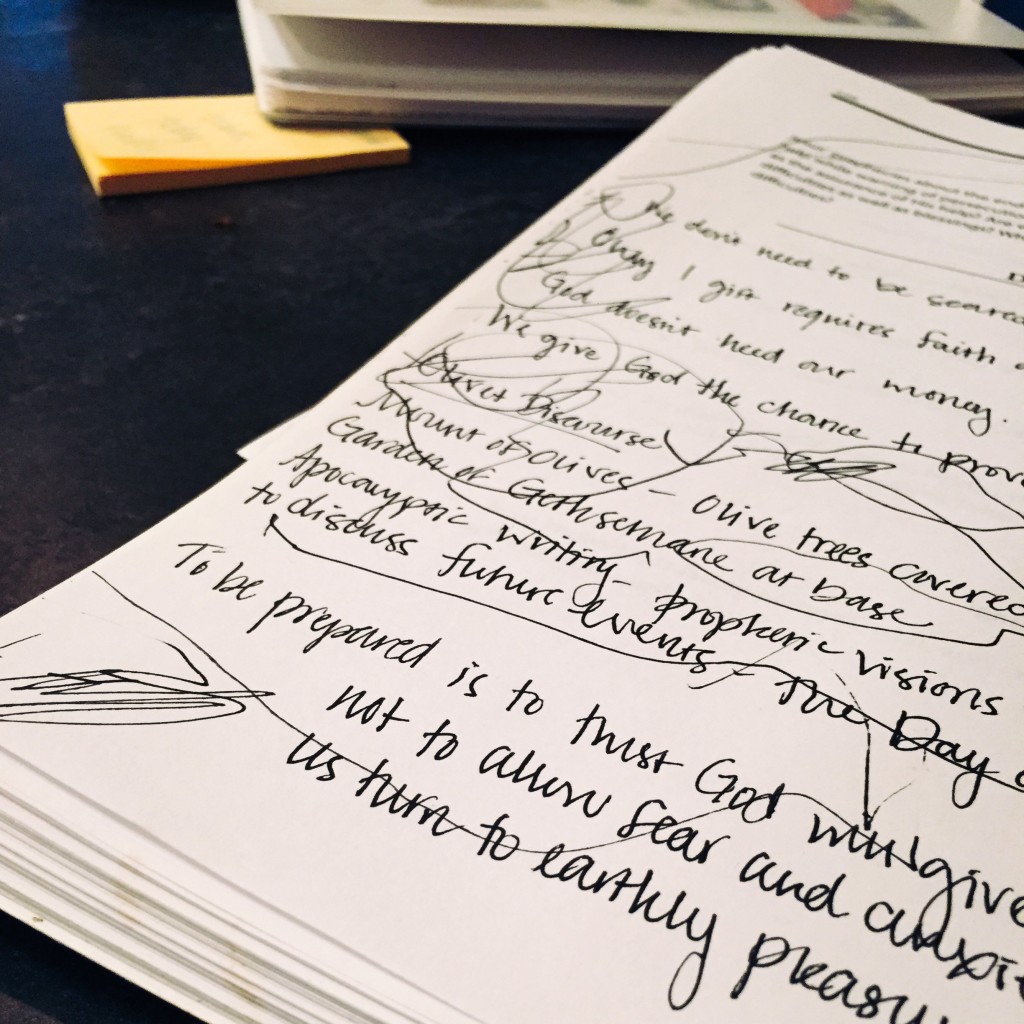 don't need to be scared
Okay 1 gift requires faith
God doesn't need our money.
We give God the chance to prove
Olivet Discourse
Mount of Olives - Olive trees covered
Garden of Gethsemane at base
Apocalyptic writing - prophetic visions
to discuss future events - The Day
To be prepared is to trust God will give
not to allow fear and anxi
us turn to earthly pleasu